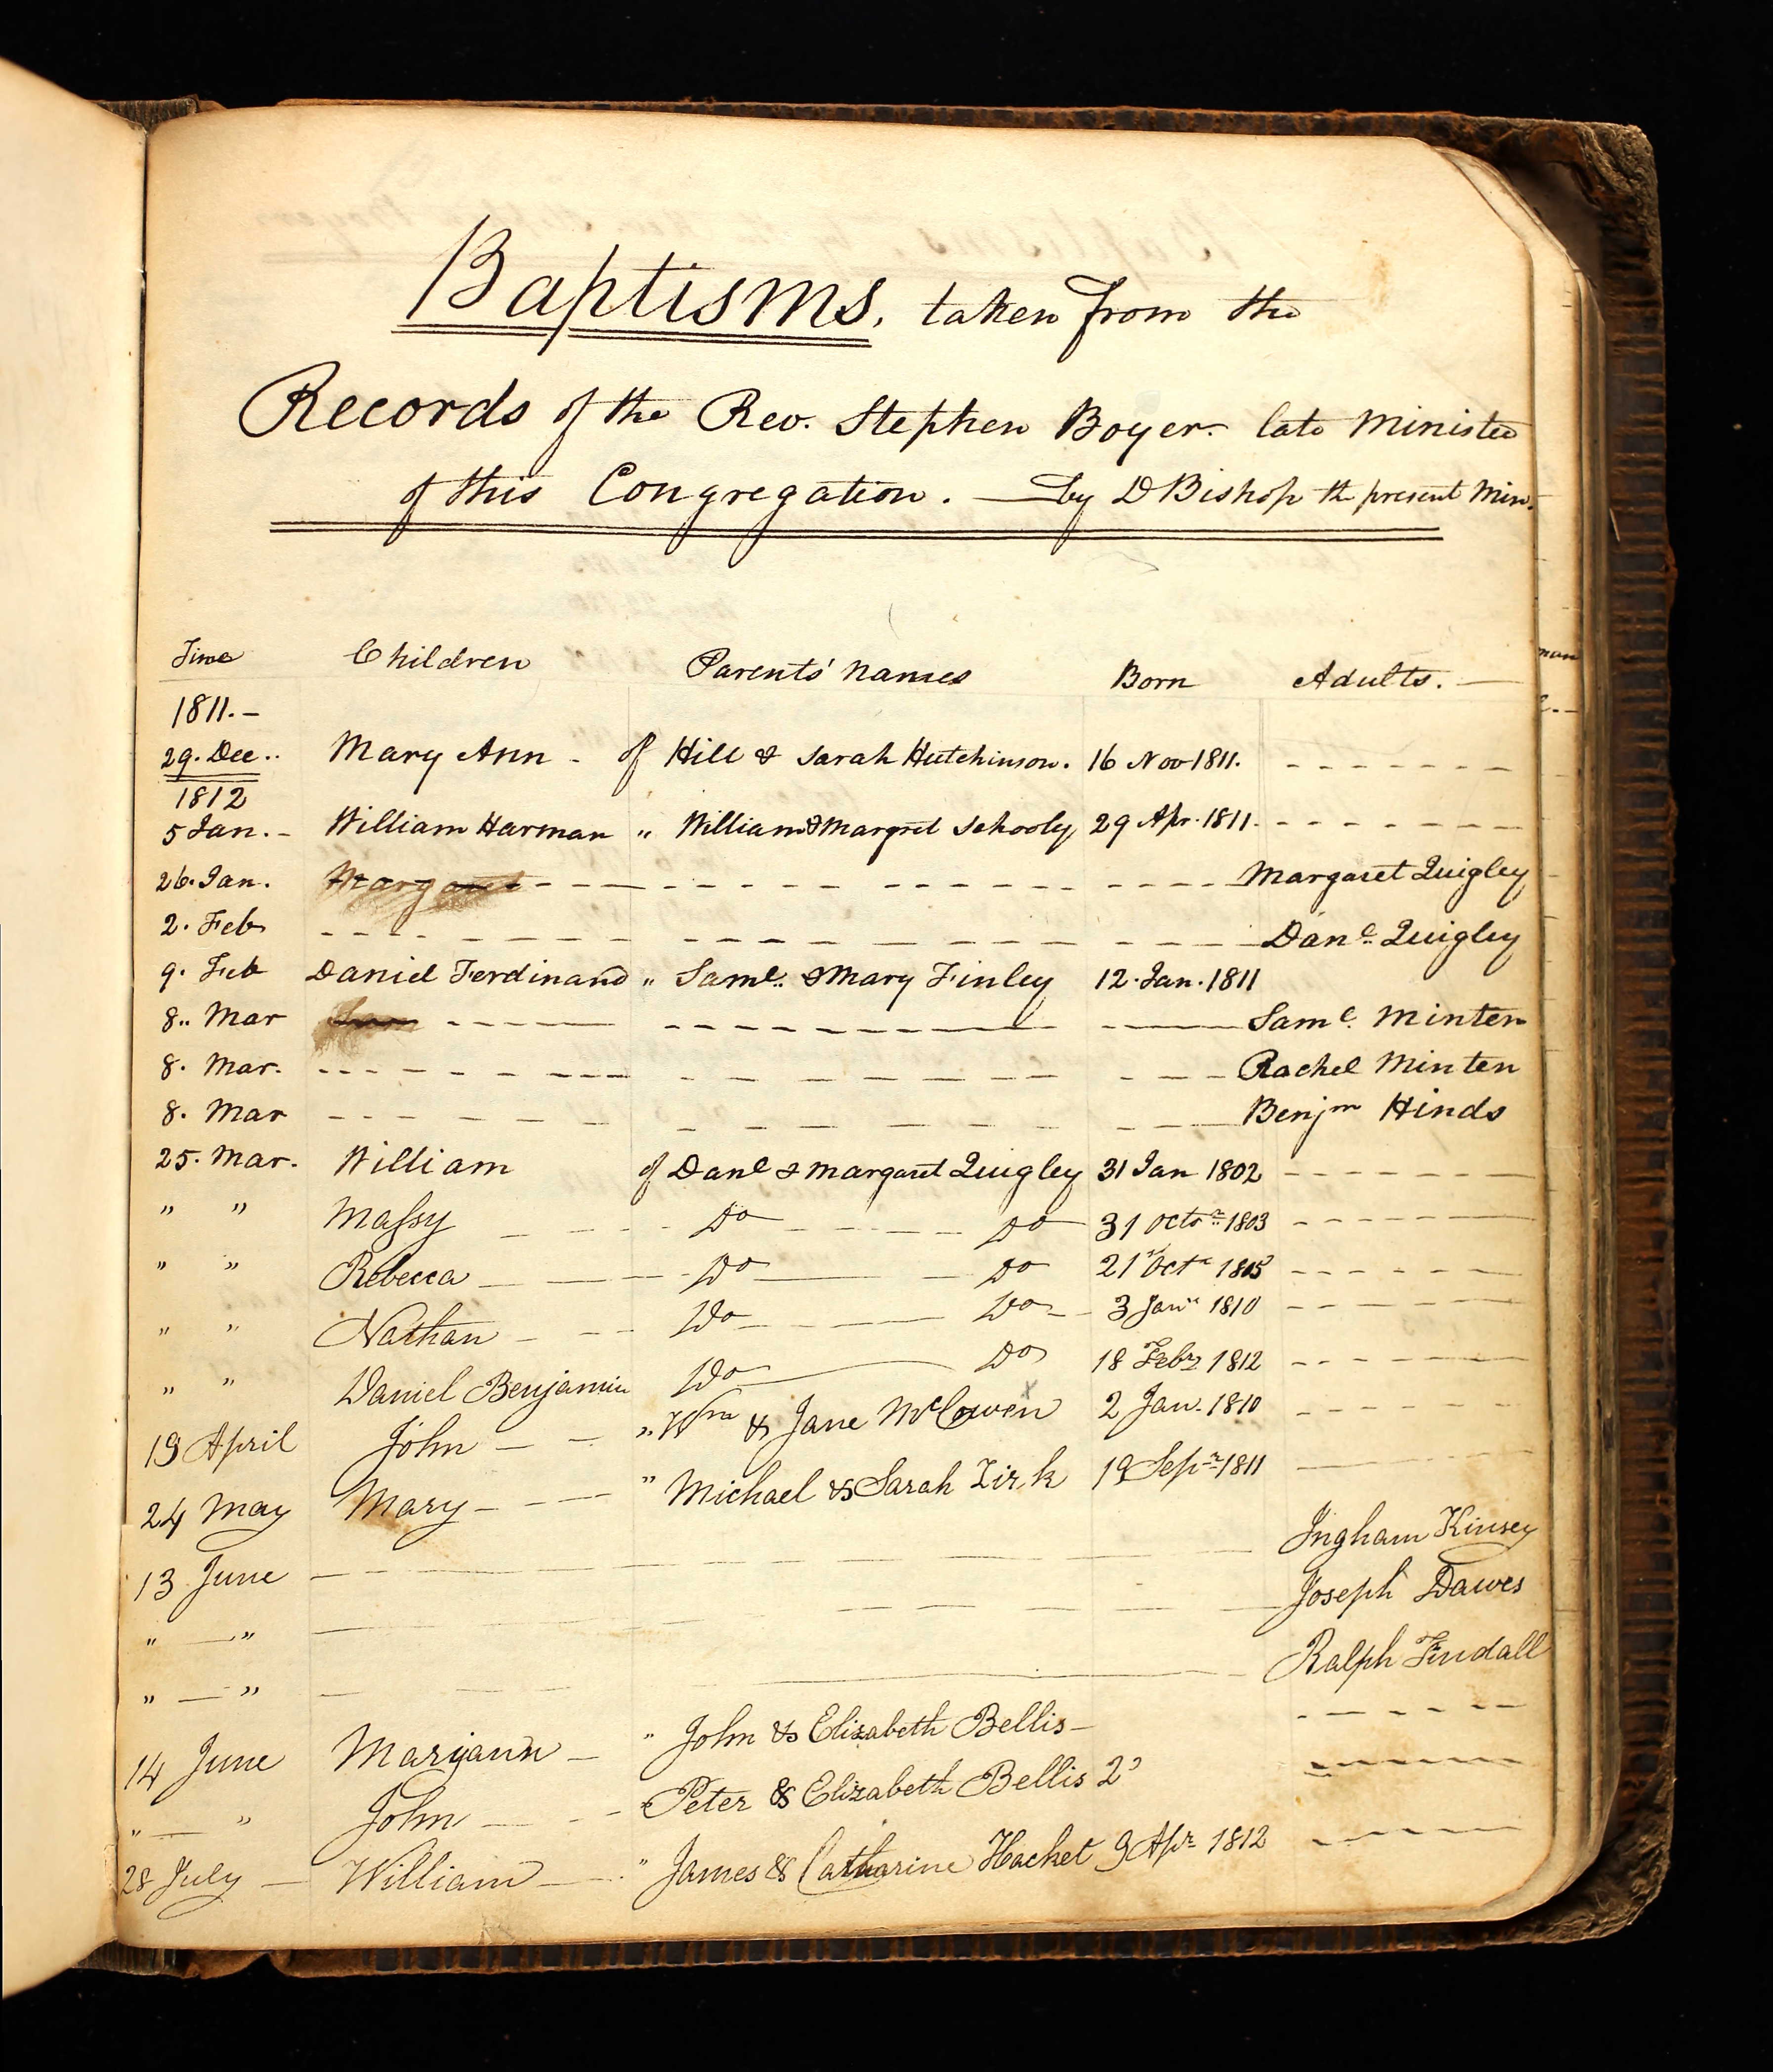 Baptisms, taken from the
Records of the Rev. Stephen Boyer late Minister
of this Congregation. — by D Bishop the present Min.
Time Children Parents' Names Born Adults. —
1811. –
29. Dec.. Mary Ann - of Hill & Sarah Hutchinson. 16 Nov 1811.
1812
5 Jan. – William Harman " William & Margret Schooly 29 Apr. 1811.
26. Jan. Margaret Margaret Quigley
2. Feb Danl. Quigley
9. Feb Daniel Ferdinand " Saml.. & Mary Finley 12. Jan. 1811
8.. Mar Saml. Minten
8. Mar. Rachel Minten
8. Mar Benjm Hinds
25. Mar. William of Danl & Margaret Quigley 31 Jan 1802
" " Massy Do Do 31 Octr 1803
" " Rebecca Do Do 21 Octr 1805
" " Nathan Do Do 3 Jany 1810
" " Daniel Benjamin Do Do 18 Feby 1812
19 April John " Wm & Jane McCowen x 2 Jan. 1810
24 May Mary " Michael & Sarah Zirk 19 Sepr 1811
13 June Ingham Kinsey
" — " Joseph Dawes
" — " Ralph Tindall
14 June Maryann " John & Elizabeth Bellis
" — " John Peter & Elizabeth Bellis
28 July William " James & Catharine Hacket 9 Apr 1812